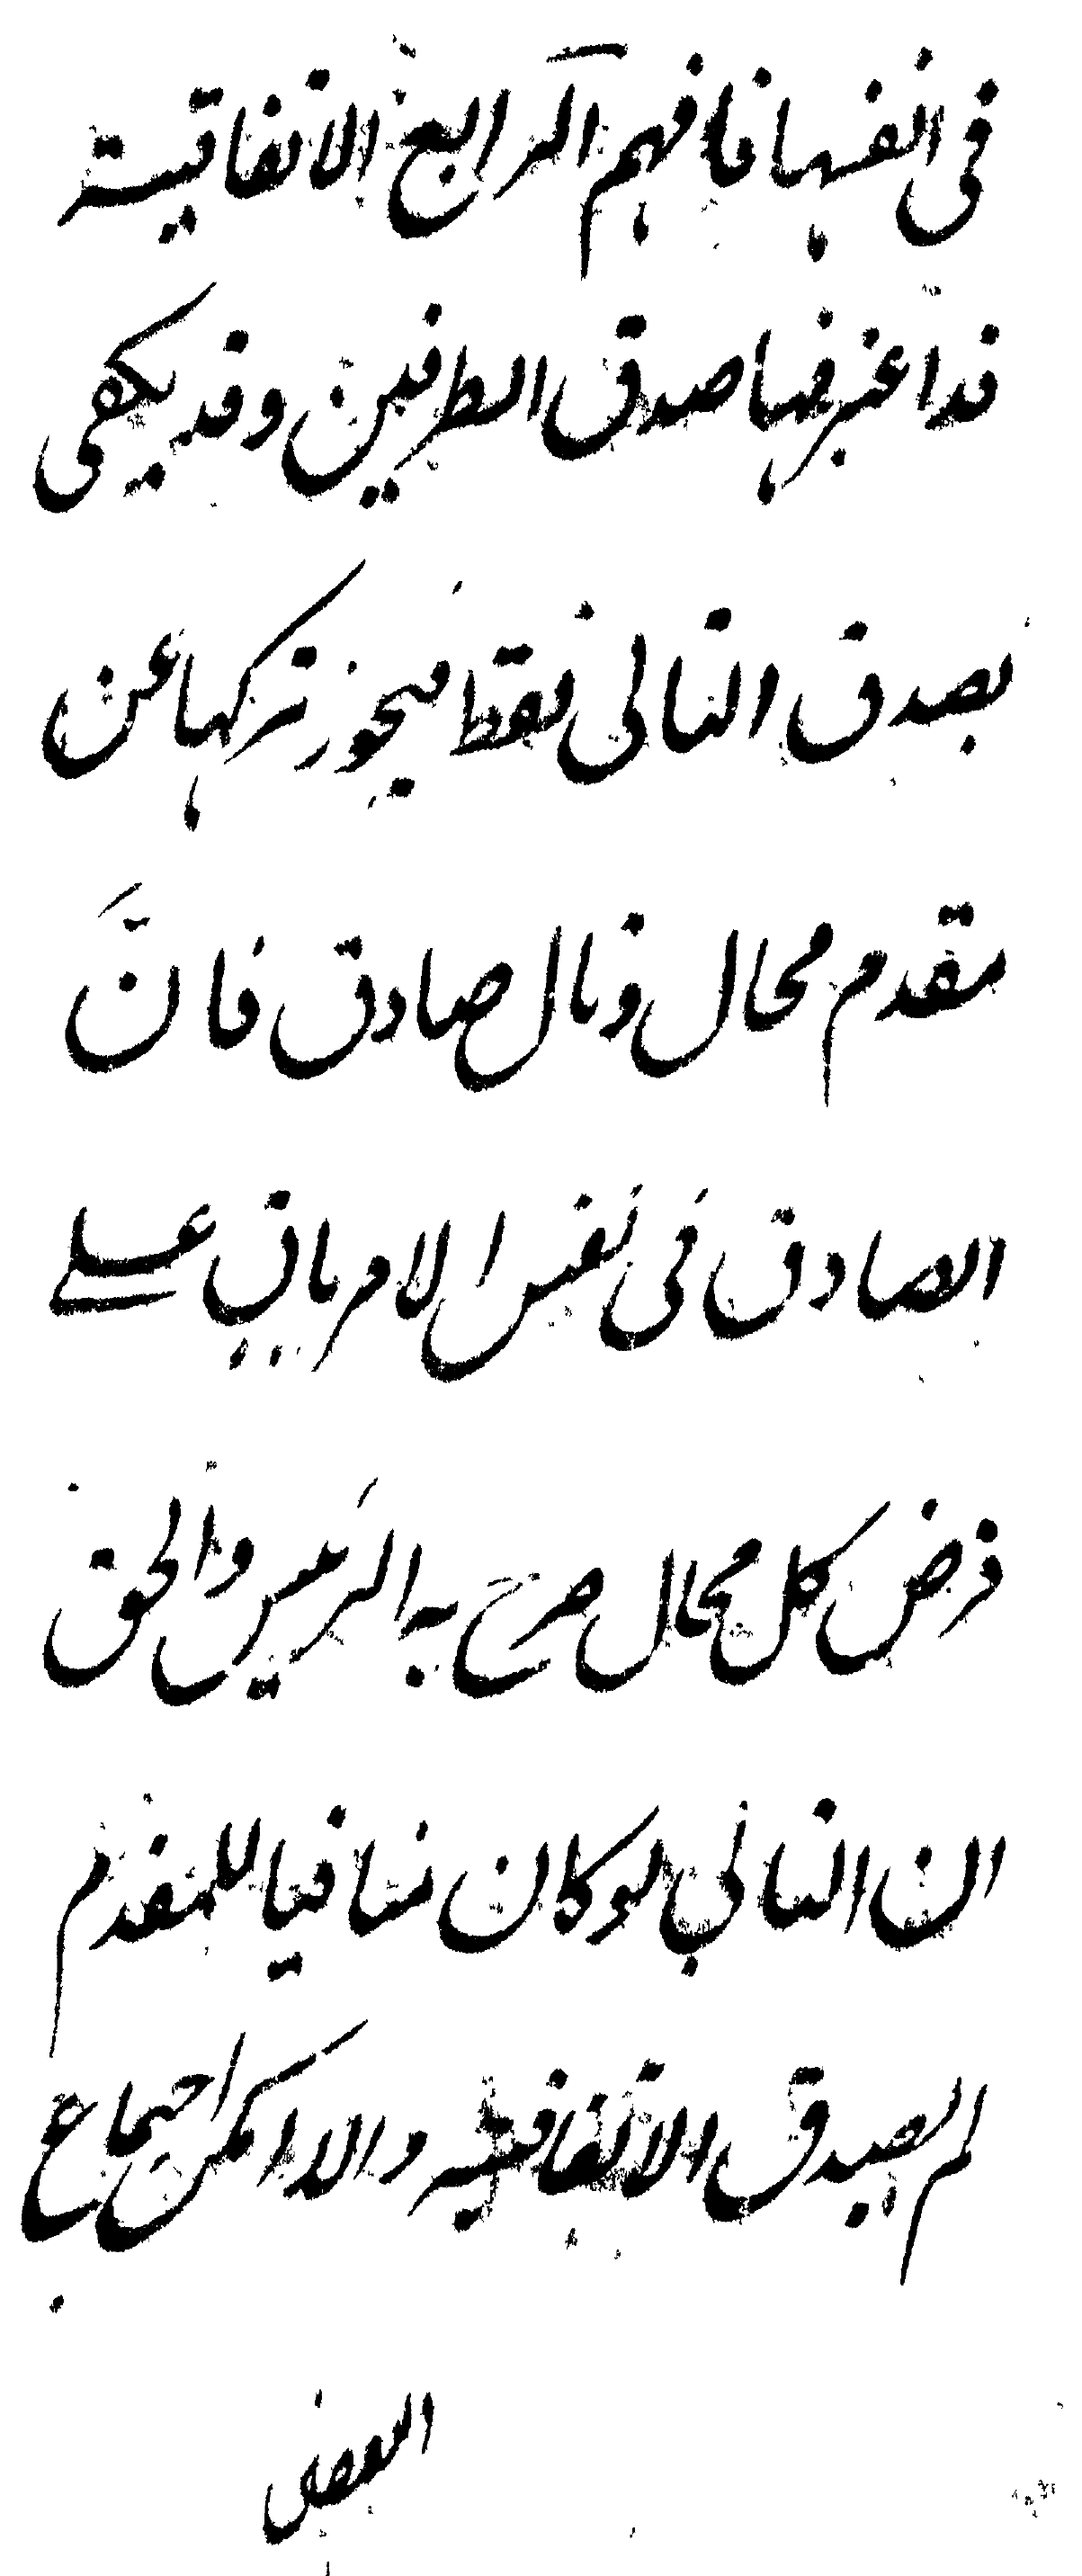 في انفسها فافهم الرابع الاتفاقية
قد اعتبر فيها صدق الطرفين وقد يكتفى
بصدق التالى فقط فيجوز تركبها عن
مقدم محال وتال صادق فانَّ
الصادق فى نفس الامر باق على
فرض كل محال صرح به الرئيس والحق
ان التالي لو كان منافيا للمقدم
لم يصدق الاتفاقية والا لامكن اجتماع